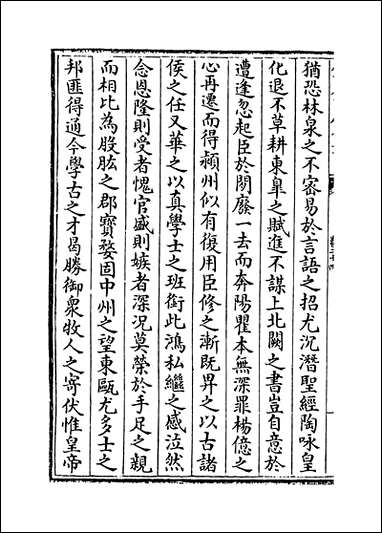 猶恐林泉之不密易於言語之招尤沉潛聖經陶咏皇
化退不草耕東臯之賦進不謀上北闕之書豈自意於
遭逢忽起臣於閑廢一去而奔陽瞿本無深罪楊億之
心再遷而得潁州似有復用臣修之漸既畀之以古諸
侯之任又華之以真學士之班銜此鴻私繼之感泣然
念恩隆則受者愧官盛則嫉者深况莫榮於手足之親
而相比為股肱之郡寶婺固中州之望東甌尤多士之
邦匪得通今學古之才曷勝御衆牧人之寄伏惟皇帝